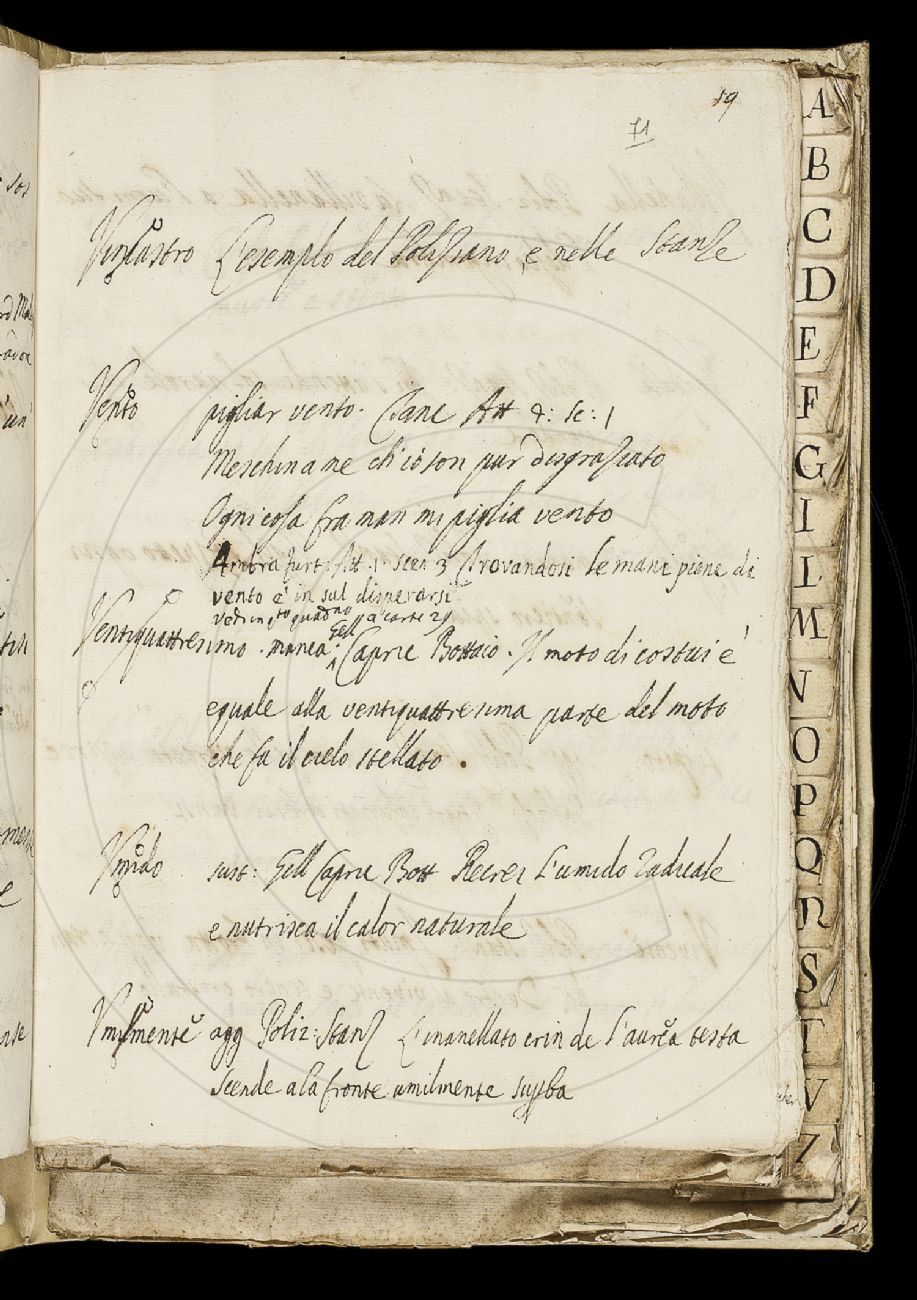 19
71
Vincastro L'esemplo del Poliziano e nelle Stanze
Vento pigliar vento. Clane Att 4: Sc: 1
Meschina me ch' io son pur disgraziato
Ogni cosa fra man mi piglia vento
Ambra Furt. Att. 1. Scen 3 Trovandosi le mani piene di
vento e in sul disperarsi
Ventiquattresimo. manca. Gell Capric Bottaio. Il moto di costui è
eguale alla ventiquattresima parte del moto
che fa il cielo stellato.
Vmido sust: Gell Capric Bott Recrei L'umido radicale
e nutrisca il calor naturale
Vmilmente agg Poliz: Stanz L'inanellato crin de l'aurea testa
Scende a la fronte umilmente superba
A
B
C
D
E
F
G
I
L
M
N
O
P
Q
R
S
T
V
Z